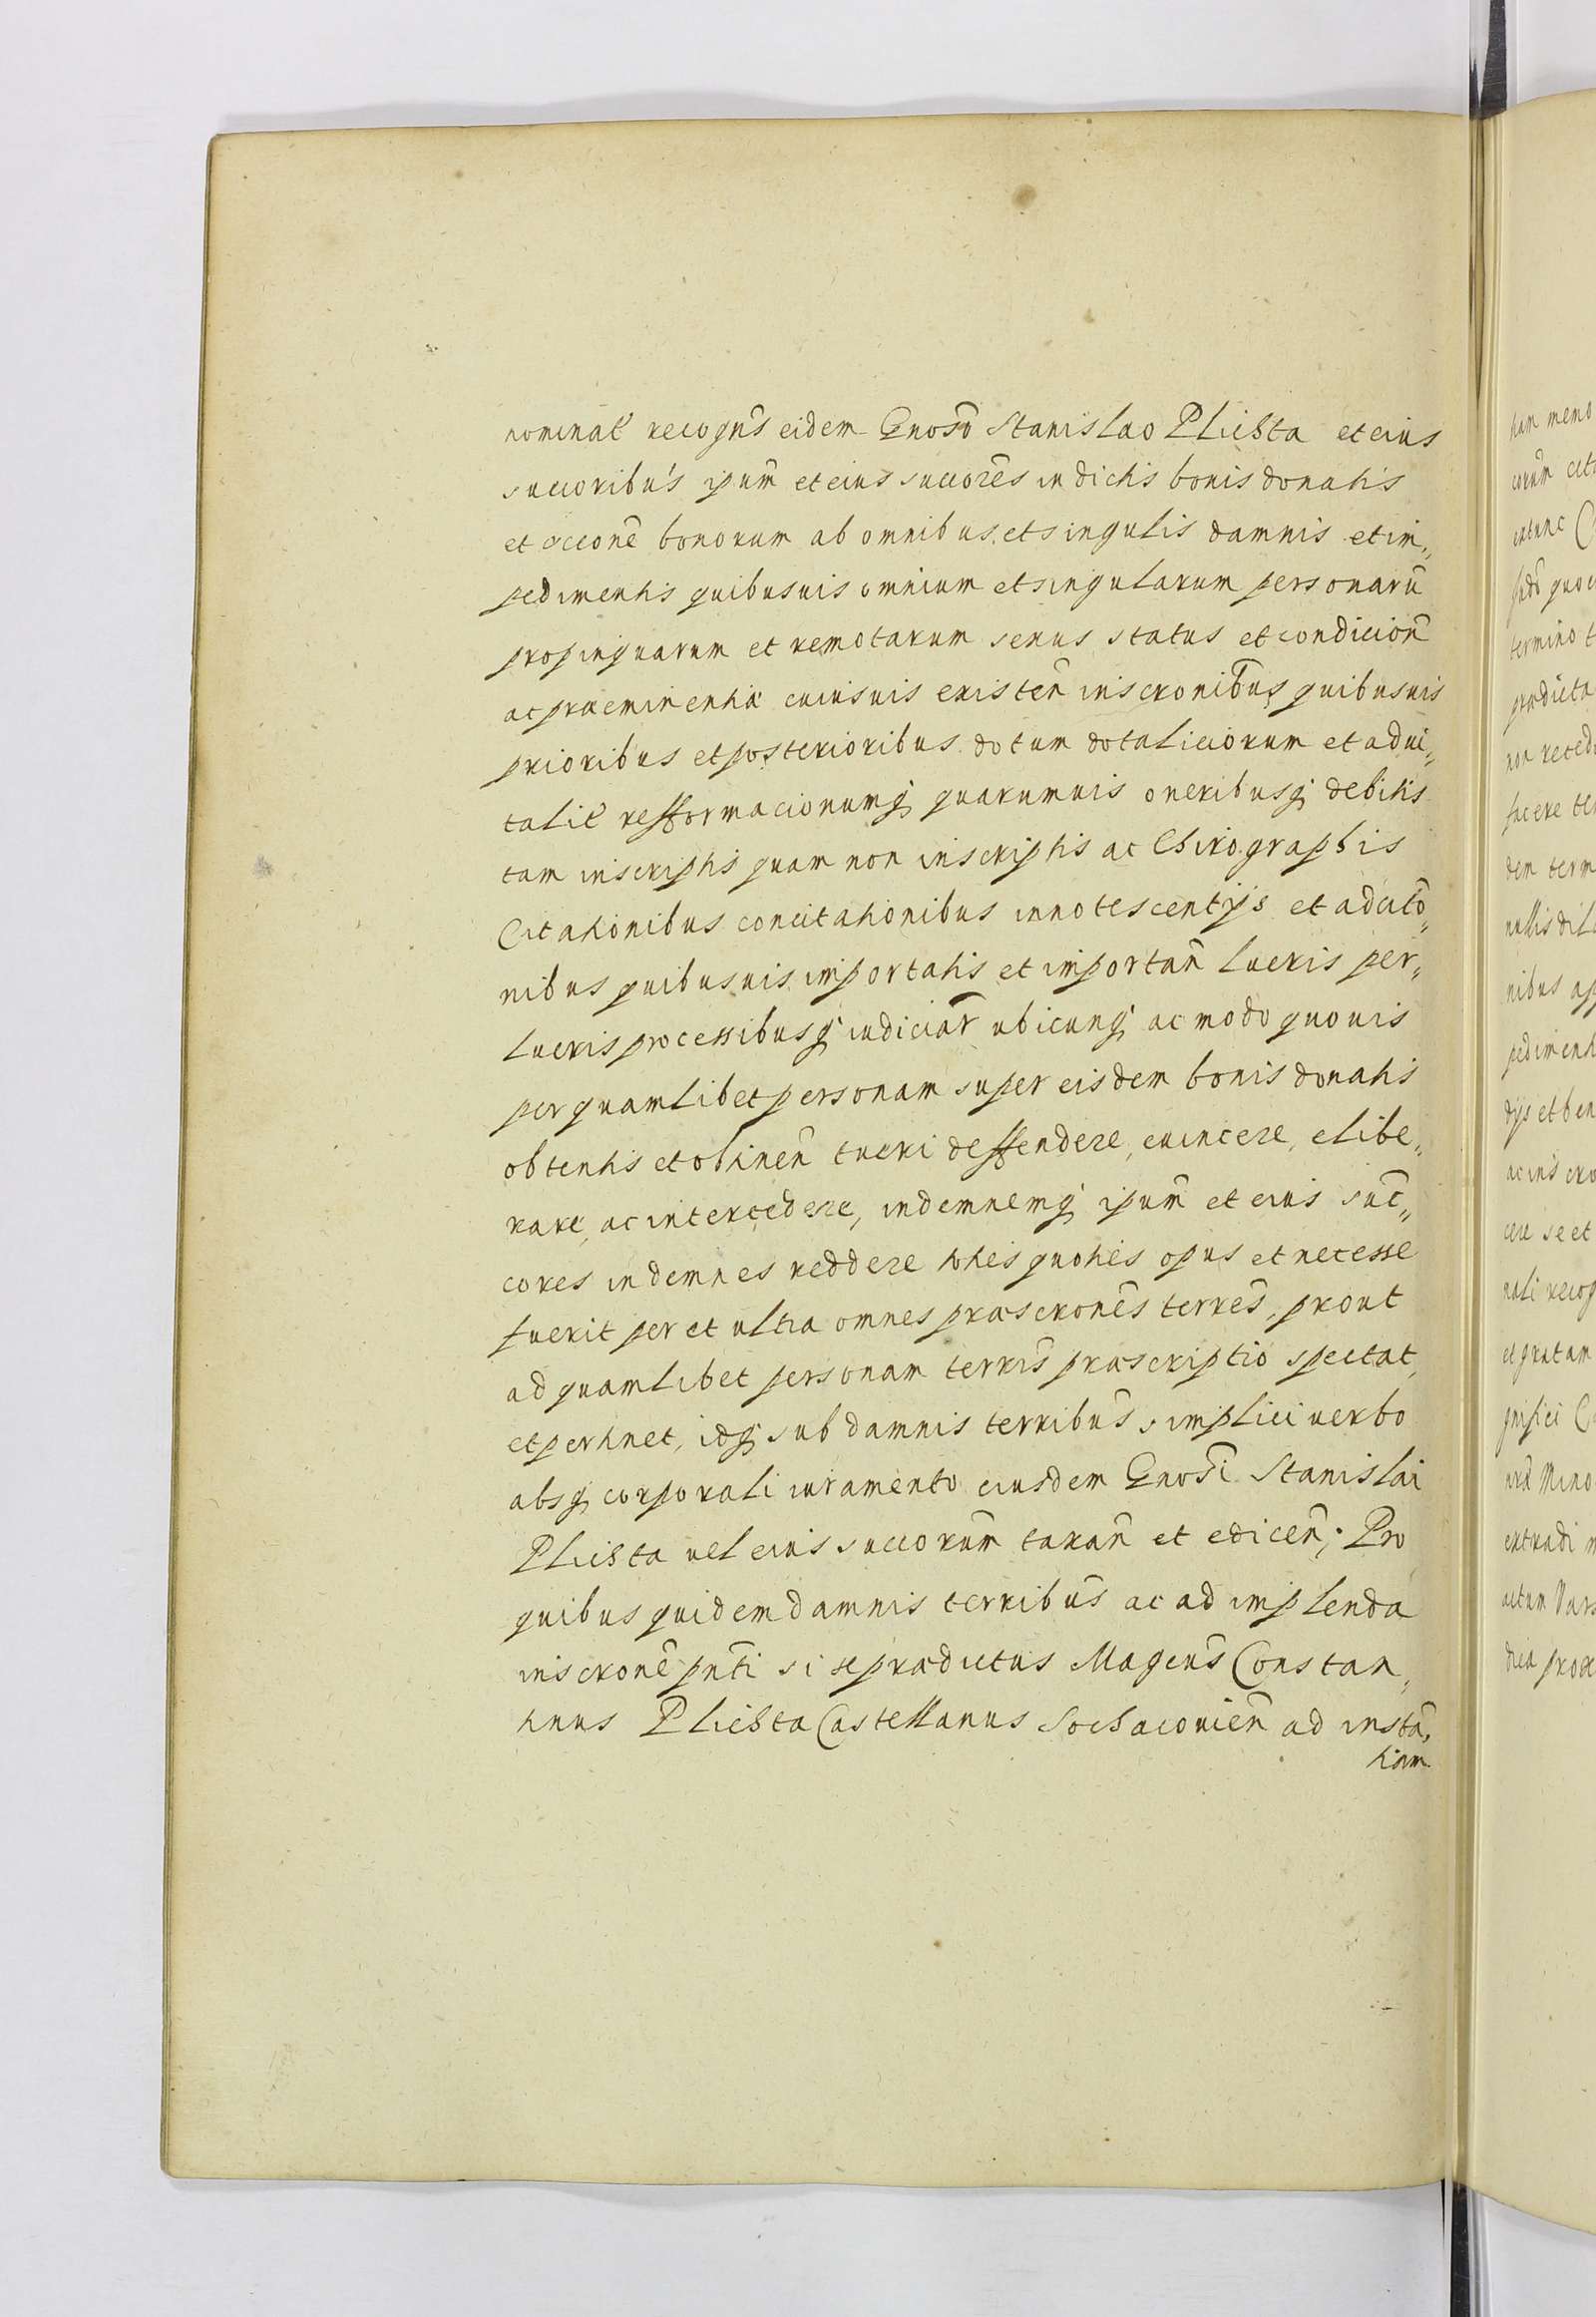 nominal recogns̃ eidem Gnoso͂ Stanislao Plichta et eius
succoribus̃ ipum̃ et eius succores̃ in dictis bonis donatis
et occone͂ bonorum ab omnibus et singulis damnis et im„
pedimentis quibusuis omnium et singularum personarũ
propinquarum et remotarum sexus status et condicioñ
ac praeminentia cuiusuis existeñ inscronibus̃ quibusuis
prioribus et posterioribus dotum dotaliciorum et adui„
talił refformacionumq; quarumuis oneribusq; debitis
tam inscriptis quam non inscriptis ac Chirographis
Citationibus concitationibus innotescentijs et adcito͂„
nibus quibusuis importatis et importañ lucris per„
lucris processibusq; iudiciar̃ ubicunq; ac modo quouis
per quamlibet personam super eisdem bonis donatis
obtentis et obtineñ tueri deffendere, euincere, elibe„
rare, ac intercedere, indemnemq; ipum̃ et eius suc̃„
cores indemnes reddere toties quoties opus et necesse
fuerit per et ultra omnes praescrones̃ terres̃, prout
ad quamlibet personam terris̃ praescriptio spectat,
et pertinet, idq; sub damnis terribus̃ simplici uerbo
absq; corporali iuramento eiusdem Gnosi͂ Stanislai
Plichta uel eius succorum̃ taxañ et ediceñ; Pro
quibus quidem damnis terribus̃ ac adimplenda
inscrone͂ pnti͂ si se praedictus Magcus̃ Constan„
tinus Plichta Castellanus Sochacouieñ ad insta͂„
tiam
ham memo
corum̃ cit
extunc
quo
termino t
praedicta
non reced
facere te
dem term
nullis dil
nibus ap
pediment
dijs et ben
ac ins cro
cere se et
nali recog
et gratam
gnifici C
Mino
extradi
actum Vars
prox